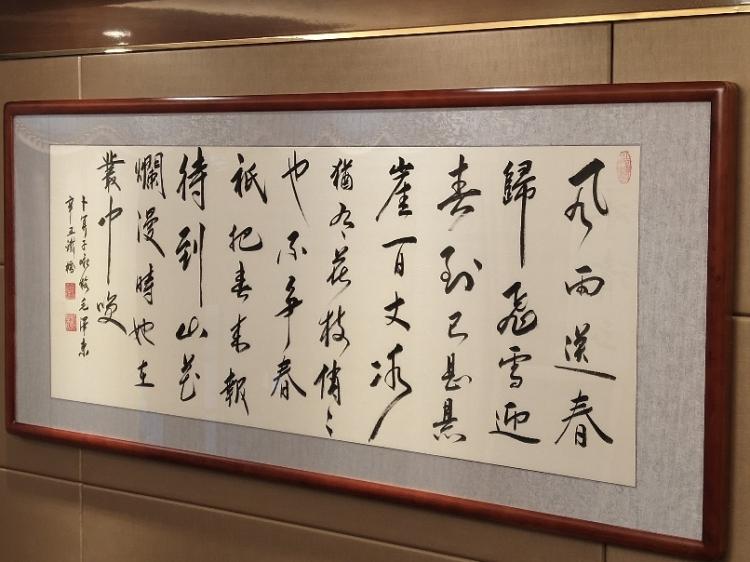 风雨送春
歸飛雪迎
春到已是懸
崖百丈冰
猶有花枝俏〻
也不争春
祇把春来報
待到山花
爛漫時她在
叢中咲
卜算子咏梅毛澤東
辛丑